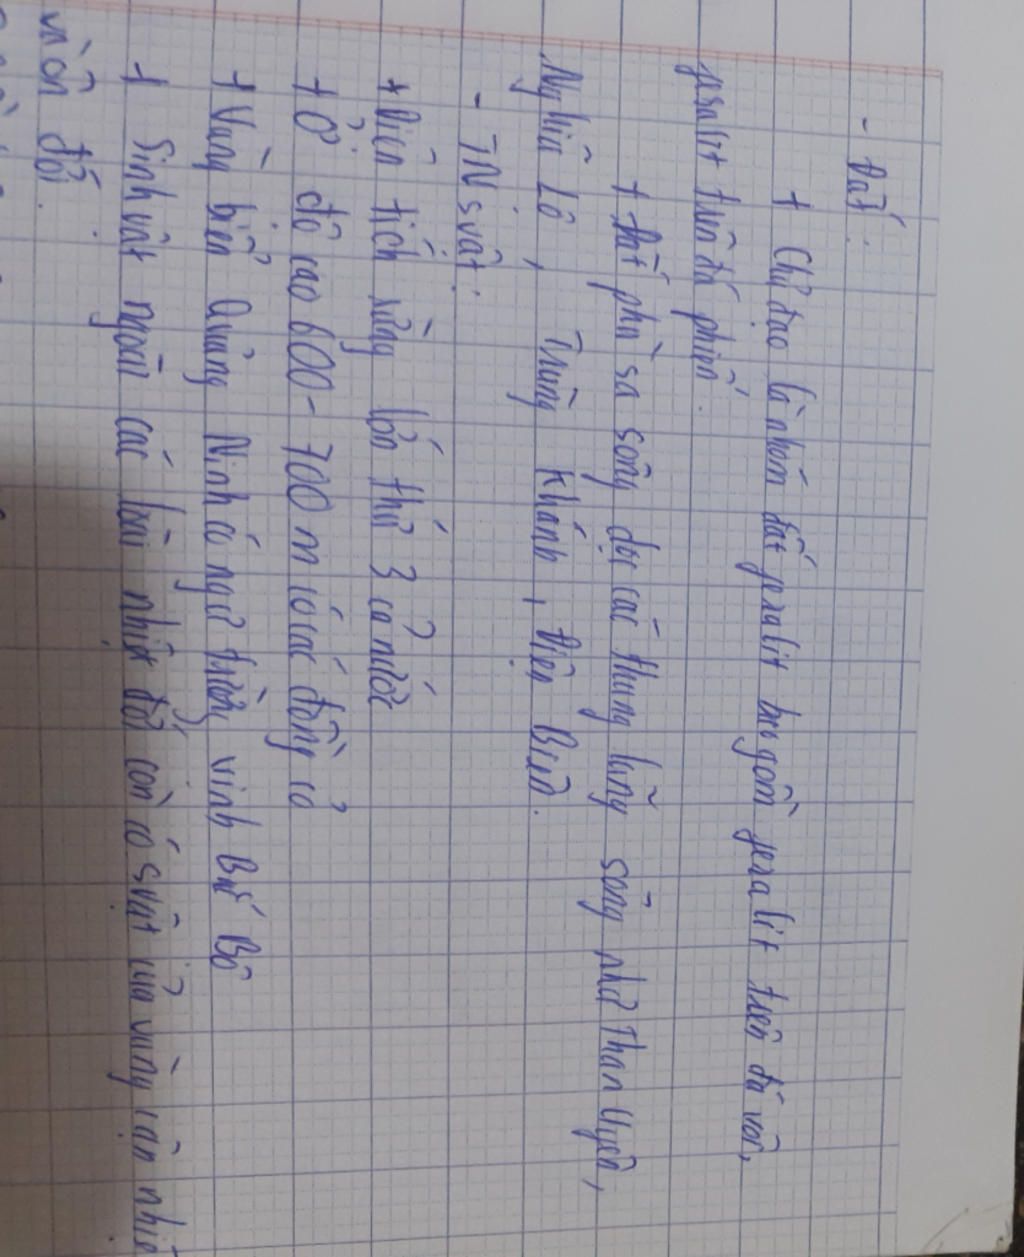 - Đất:
+ Chủ đạo là nhóm đất feralit bao gồm feralit trên đá vôi,
feralit trên đá phiến.
+ Đất phù sa sông dọc các thung lũng sông như Than Uyên,
Nghĩa Lộ, Trùng Khánh, Điện Biên.
- TN svật:
+ Diện tích rừng lớn thứ 3 cả nước
+ Ở độ cao 600-700 m có các đồng cỏ
+ Vùng biển Quảng Ninh có ngư trường vịnh Bắc Bộ
+ Sinh vật ngoài các loài nhiệt đới còn có svật của vùng cận nhiệt
và ôn đới.